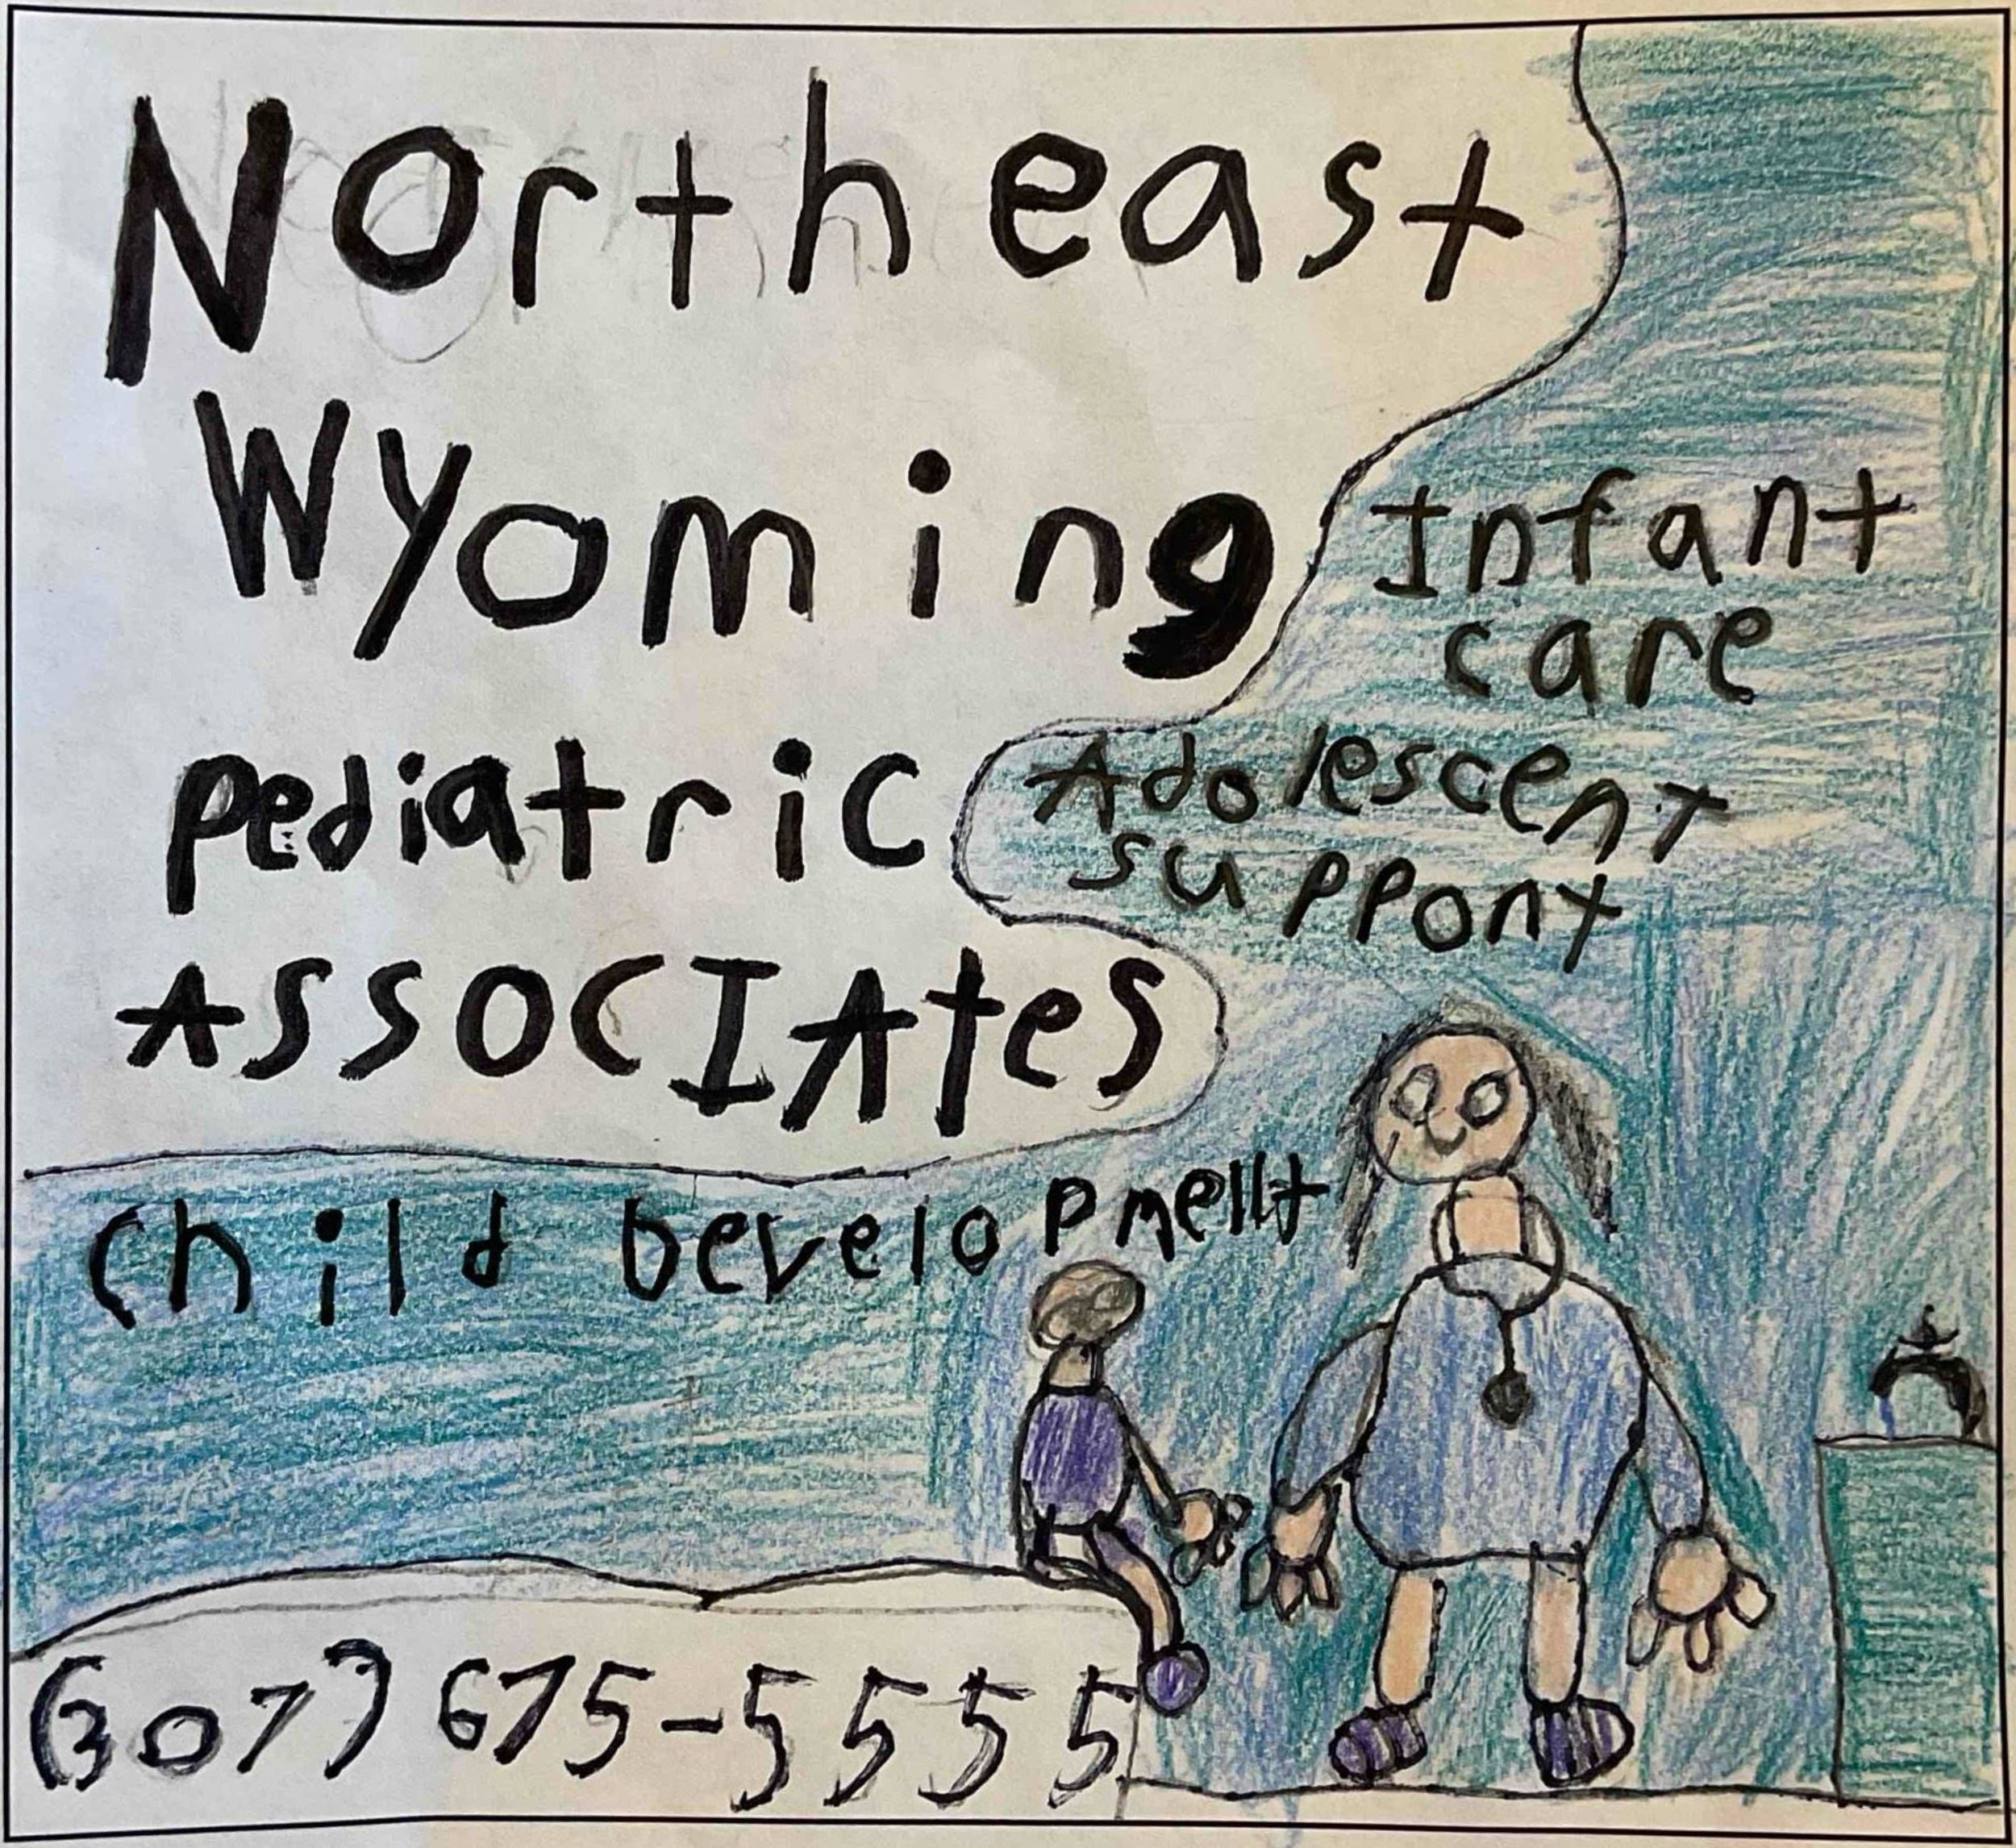 Northeast
Wyoming
pediatric
ASSOCIAtes
Infant
care
Adolescent
support
child Development
(307) 675-5555